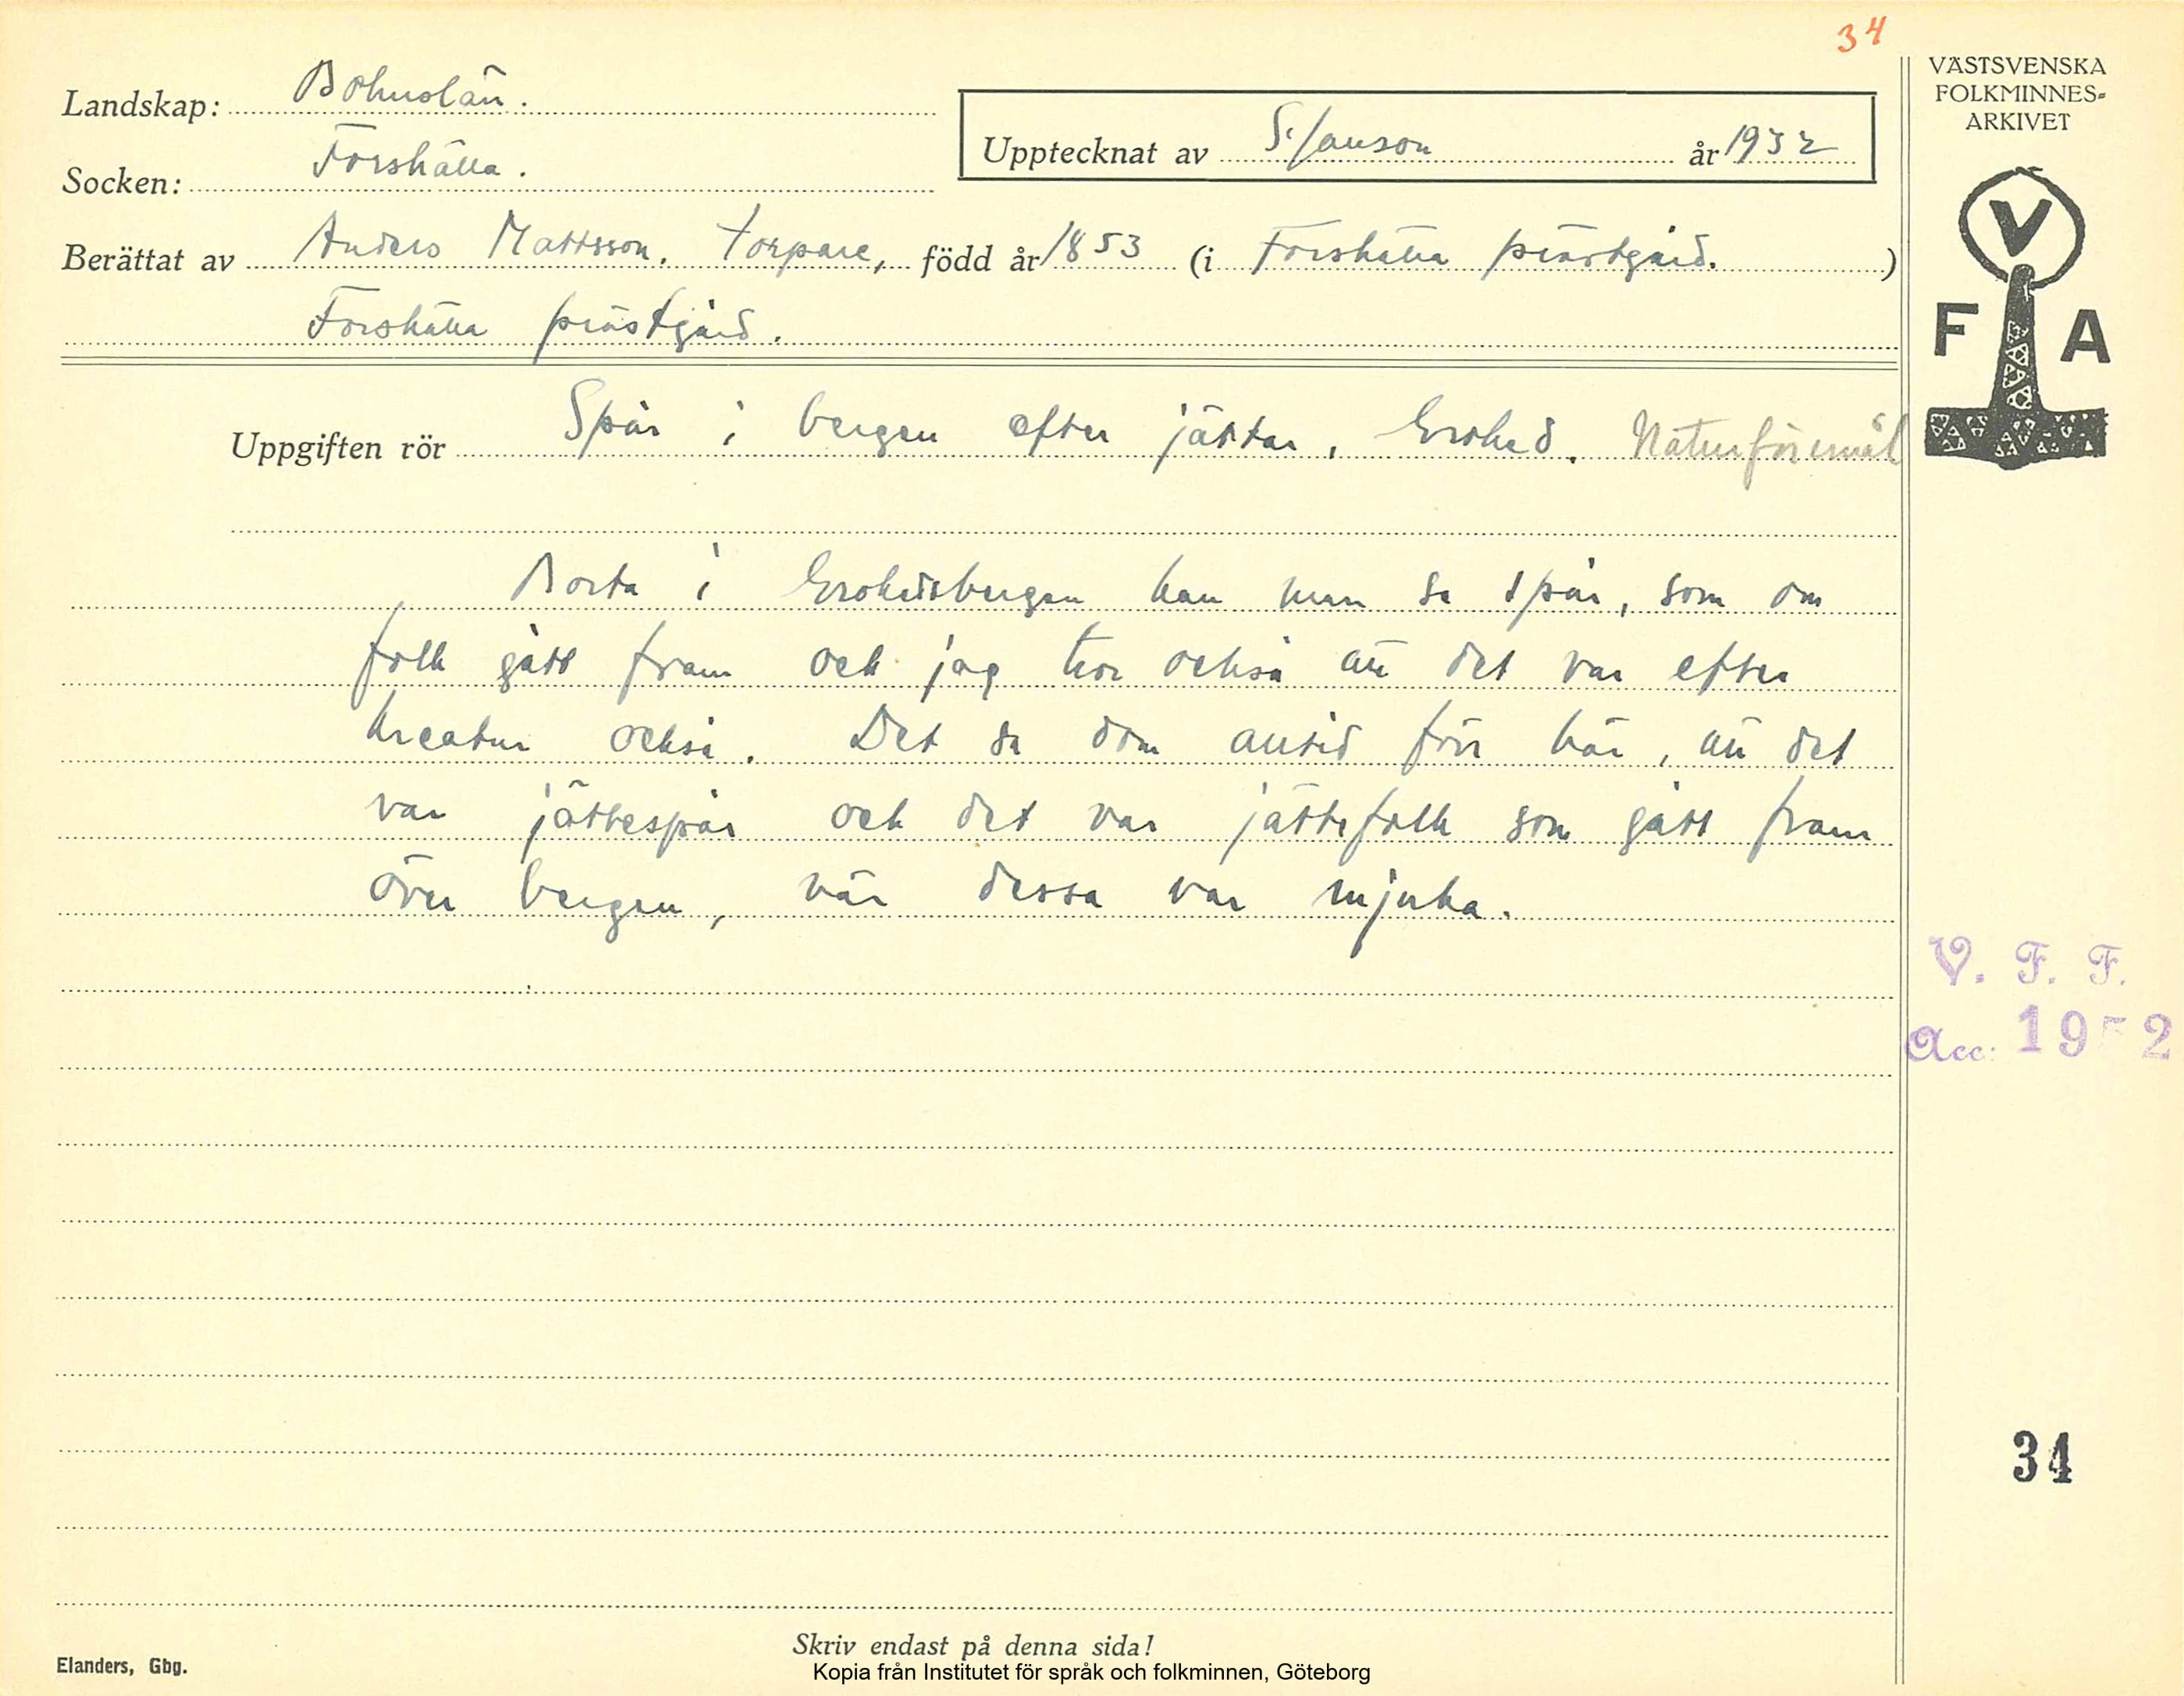 34
VÄSTSVENSKA
FOLKMINNES-
ARKIVET
Landskap: Bohuslän.
Upptecknat av S. Janson år 1932
Socken: Forshälla.
Berättat av Anders Mattsson, torpare, född år 1853 (i Forshälla prästgård.)
Forshälla prästgård.
V
F A
Uppgiften rör Spår i bergen efter jättar, Grohed. Naturföremål
Borta i Grohedsbergen kan man se spår, som om
folk gått fram och jag tror också att det var efter
kreatur också. Det sa dom alltid förr här, att det
var jättespår och det var jättefolk som gått fram
över bergen, när dessa var mjuka.
V. F. F.
Acc: 19 2
34
Skriv endast på denna sida!
Elanders, Gbg.
Kopia från Institutet för språk och folkminnen, Göteborg